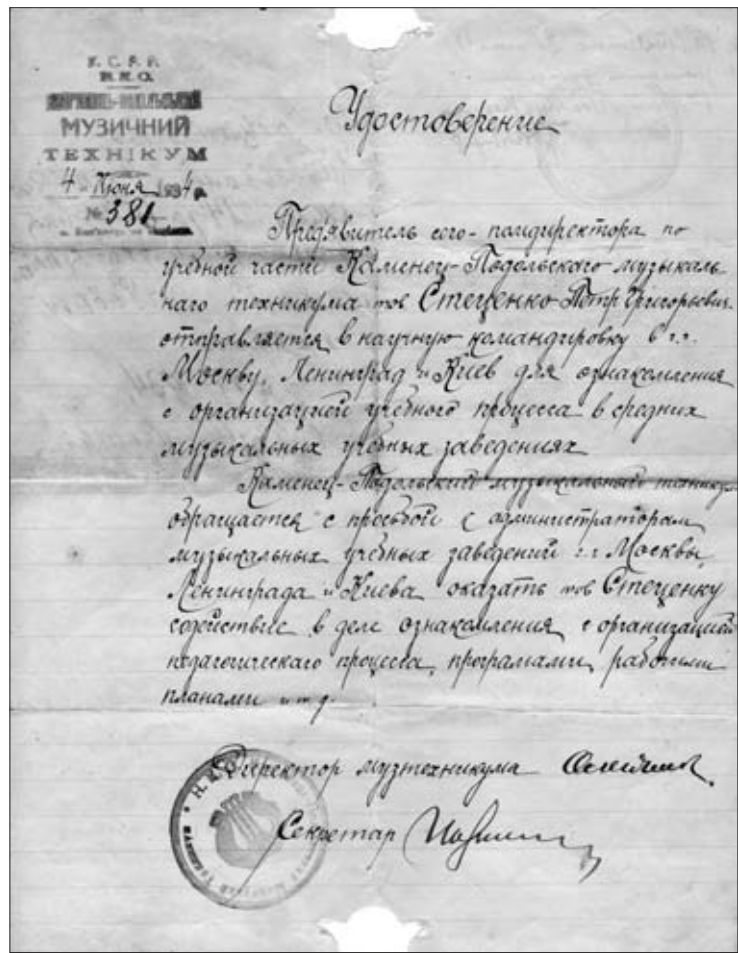 У.С.Р.Р.
Н.К.О.
МУЗИЧНИЙ
ТЕХНІКУМ
4 Июня 1934 р.
№ 381
Удостоверение
Предявитель сего - помдиректора по
учебной части Каменец-Подольского музыкаль
ного техникума тов Стеценко Петр Григорьевич
отправляется в научную командировку в г.г.
Москву, Ленинград и Киев для ознакомления
с организацией учебного процесса в средних
музыкальных учебных заведениях
Каменец-Подольский музыкальный техникум
обращается с просьбой с администраторам
музыкальных учебных заведений г.г Москвы,
Ленинграда и Киева оказать тов Стеценку
содействие в деле ознакомления с организацией
педагогическаго процесса, програмами, рабочими
планами и т д.
Директор музтехникума
Секретар
Н.К.О.